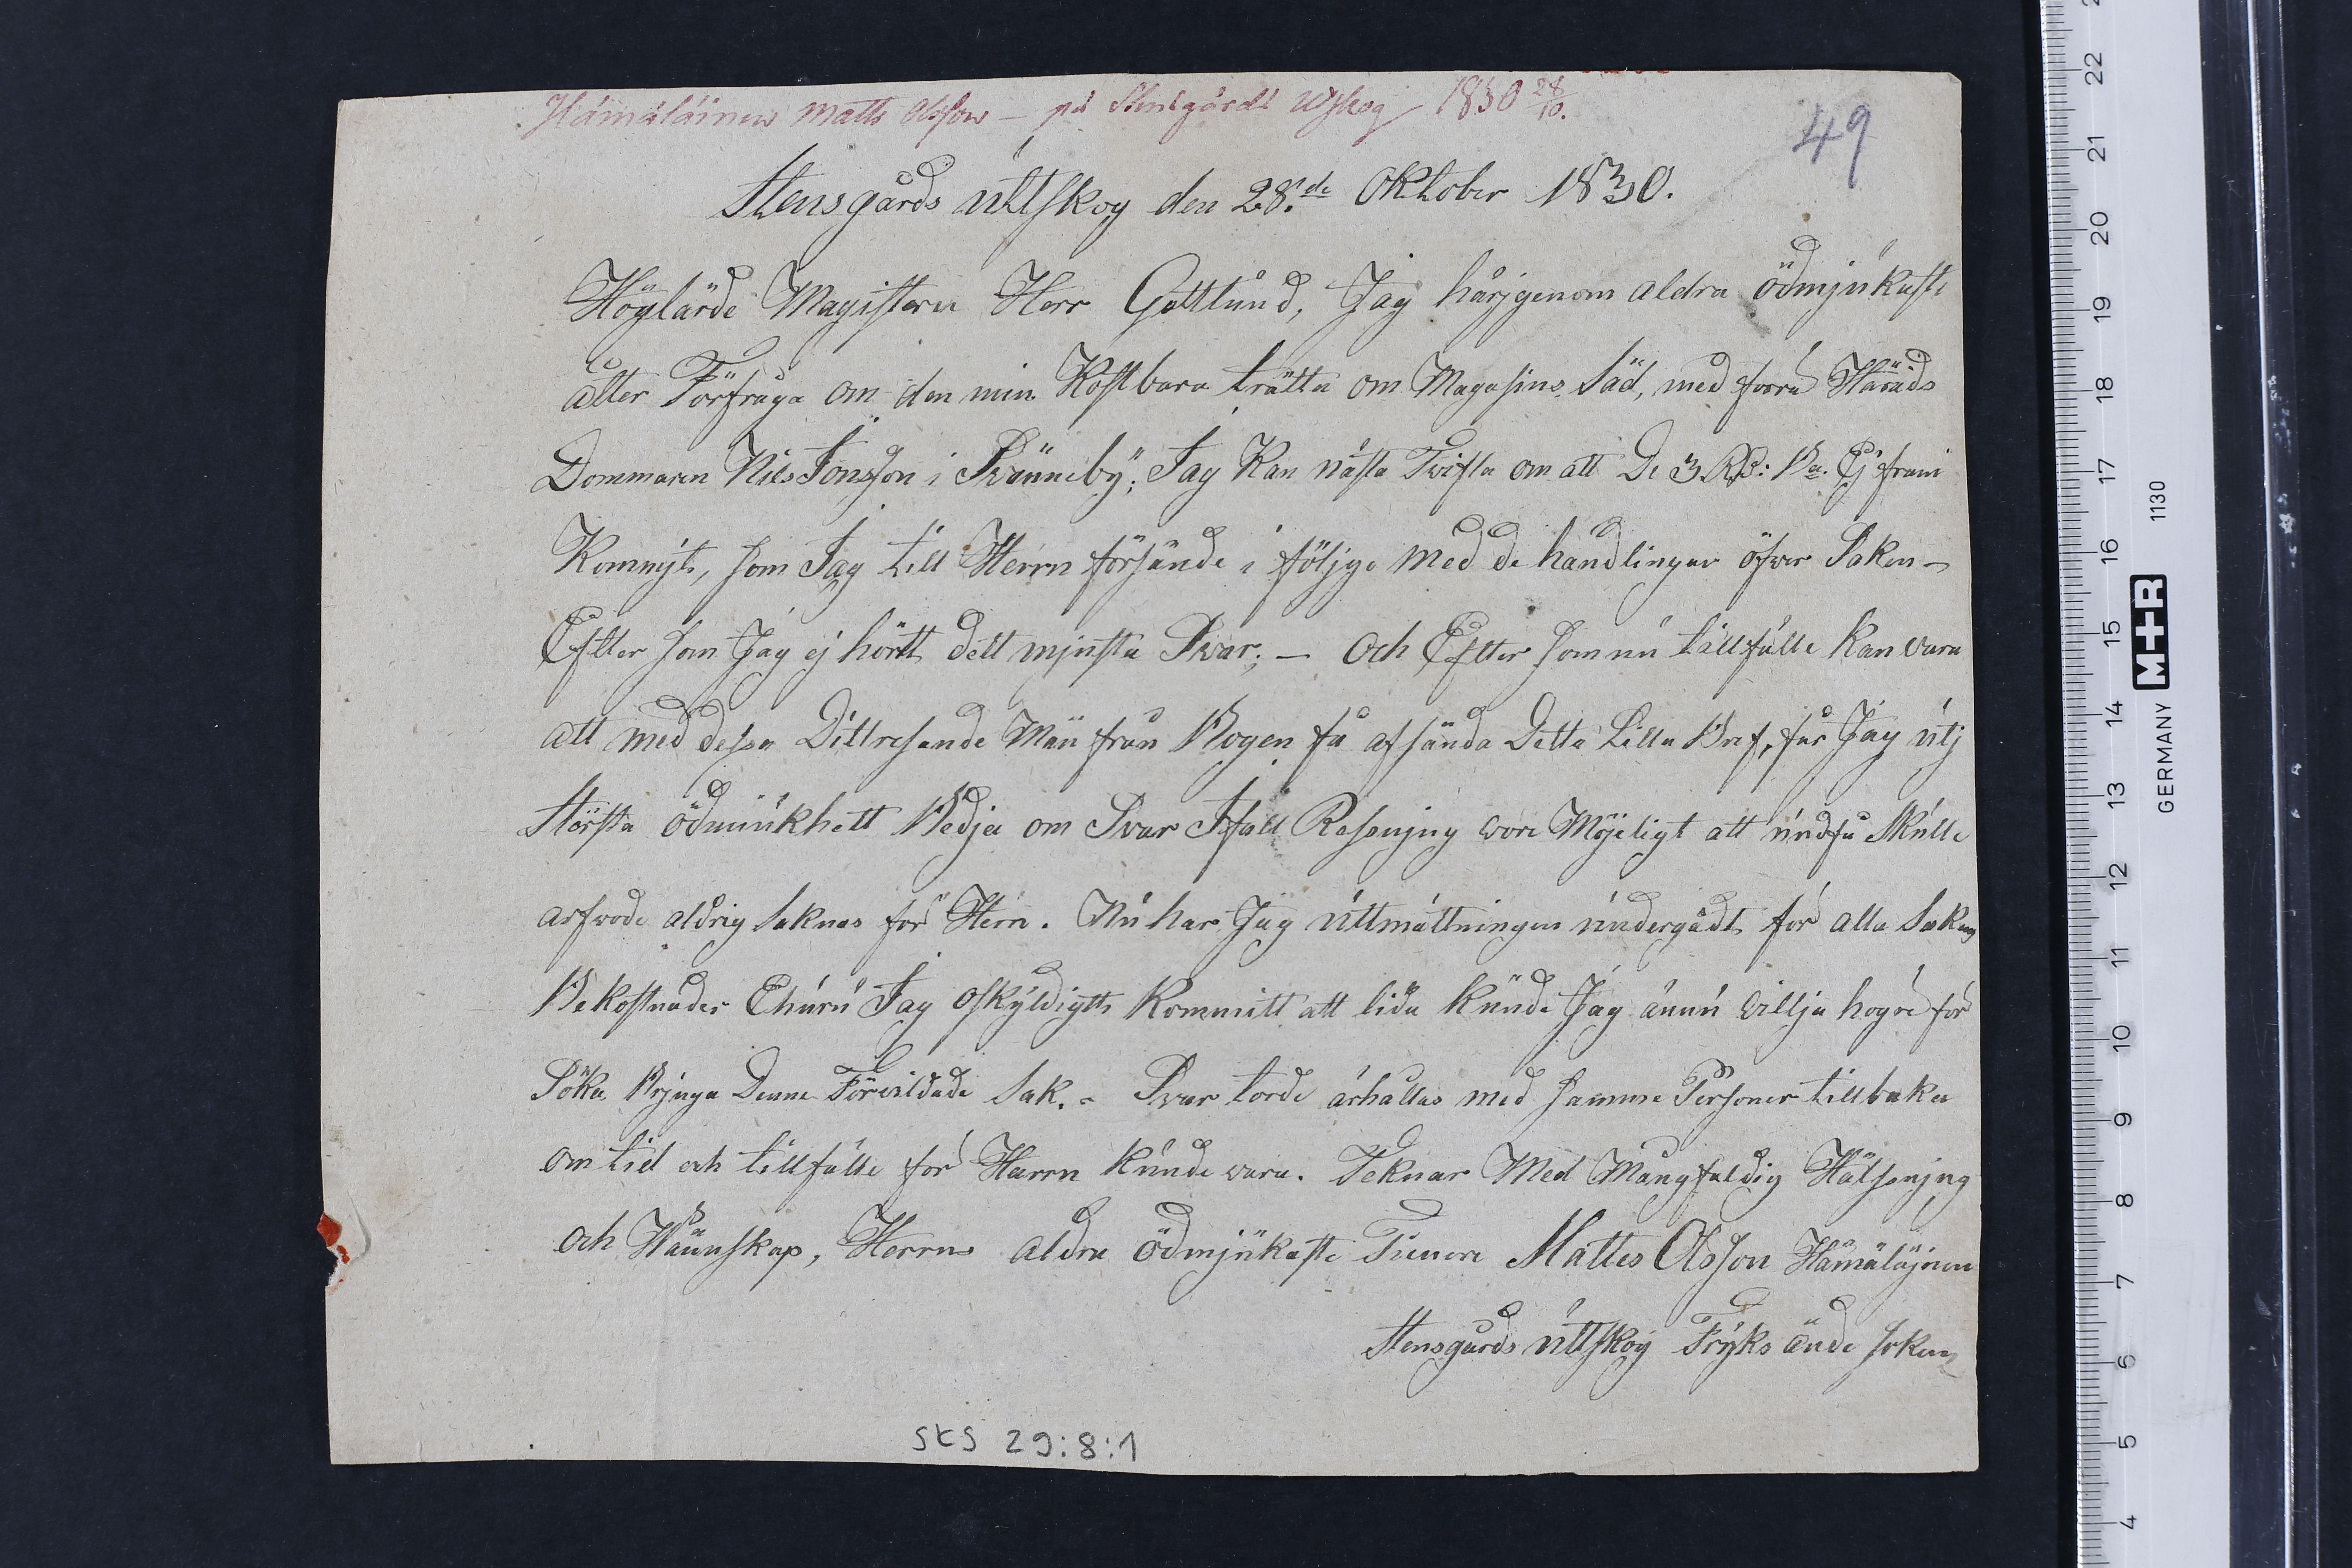 Hämäläinen Matts Olsson – på Stensgårds Utskog 1830 28/10.
49
Stensgårds ûttskog den 28:de Oktober 1830.
Höglärde Magistern Herr Gottlund, Jag härigenom aldra ödmjûkaste
åtter Förfråga om den min Kostbara trätta om Magasins Säd, med förra Härads
Dommaren Nils Jonsson i Svänneby; Jag Kan nästa Twifla om att De 3 RD: B:co Ej fram
Kommit, som Jag till Herrn försände i följge med de handlingar öfver Saken –
Eftter som Jag ej hörtt dett minsta Svar; – och Eftter som nû tillfälle kan vara
att med dessa Dittresande Män från Bogen få afsända Detta Lilla Bref, får Jag ûtj
största ödmiûkhett Bedja om Svar Ifall Resenjng wore Möjeligt att ûndfå Skulle
arfvode aldrig saknas för Herrn. Nû har Jag ûttmättningen ûndergådt för alla Sakens
Bekostnader Ehûrû Jag oskyldigtt Kommitt att lida kûnde Jag ännû villja högre för
Söka Brjnga Denne Förvildade Sak. – Svar torde ärhållas med samme Personer tillbaka
om tid och tillfälle för Herrn kûnde vara. Teknar Med Mångfaldig Hälsenjng
och Wännskap, Herrns aldra ödmjûkaste Tienare Mattes Olsson Hämäläjnen
Stensgårds ûttskog Fryks ände soken
SKS 29:8:1
GERMANY 1130
M+R
22
21
20
19
18
17
16
15
14
13
12
11
10
9
8
7
6
5
4